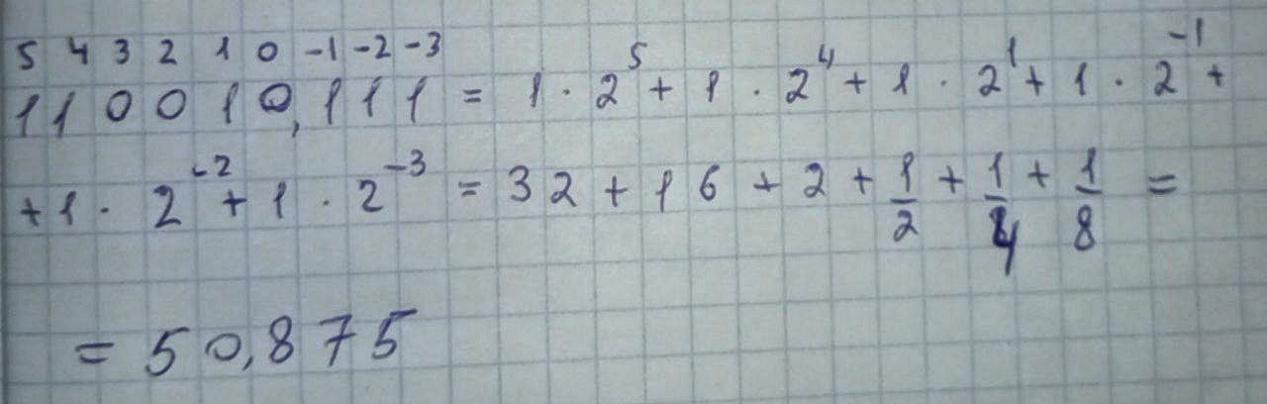 5 4 3 2 1 0 -1 -2 -3
110010,111 = 1 · 2⁵ + 1 · 2⁴ + 1 · 2¹ + 1 · 2⁻¹ +
+ 1 · 2⁻² + 1 · 2⁻³ = 32 + 16 + 2 + 1/2 + 1/4 + 1/8 =
= 50,875